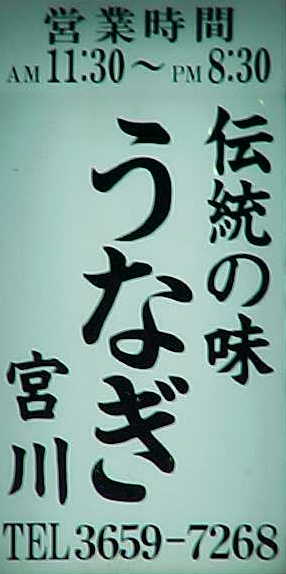 営業時間
AM 11:30〜PM 8:30
伝統の味
うなぎ
宮川
TEL3659-7268